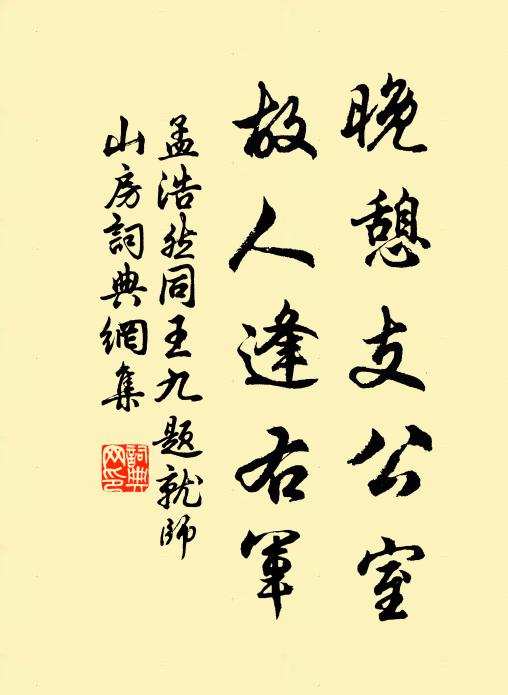 晚憩支公室
故人逢右軍
孟浩然同王九題就師
山房詞典網集
詞典
网印